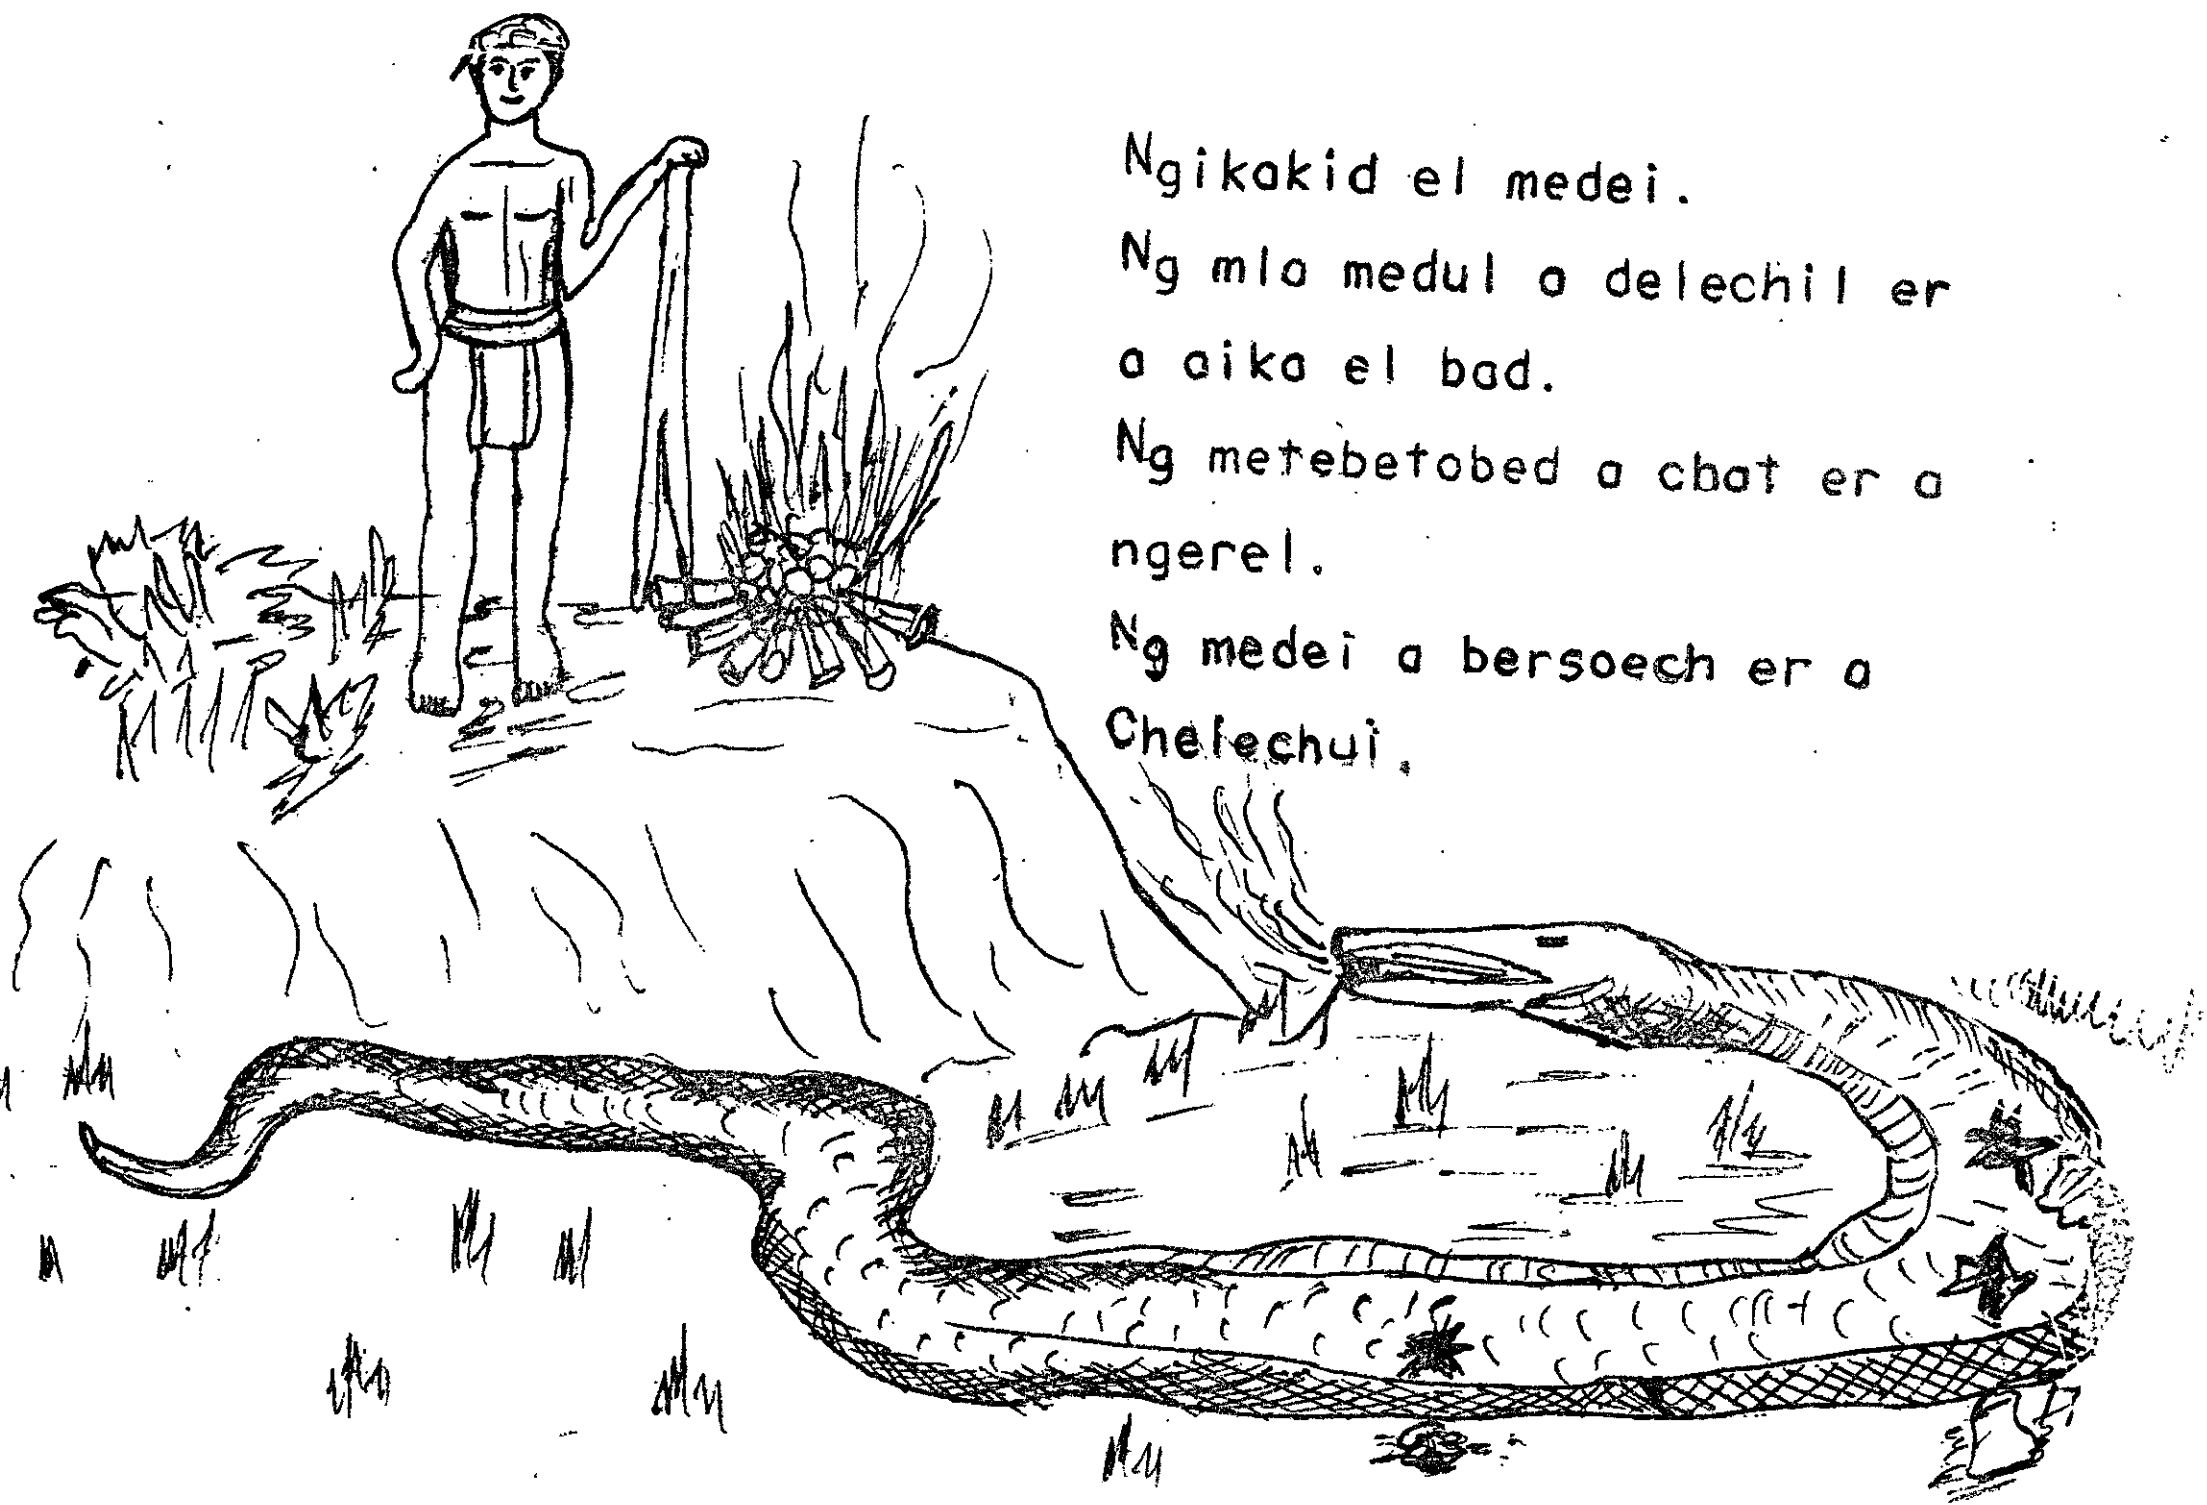 Ngikakid el medei.
Ng mla medul a delechil er
a aika el bad.
Ng metebetobed a chat er a
ngerel.
Ng medei a bersoech er a
Chelechui.